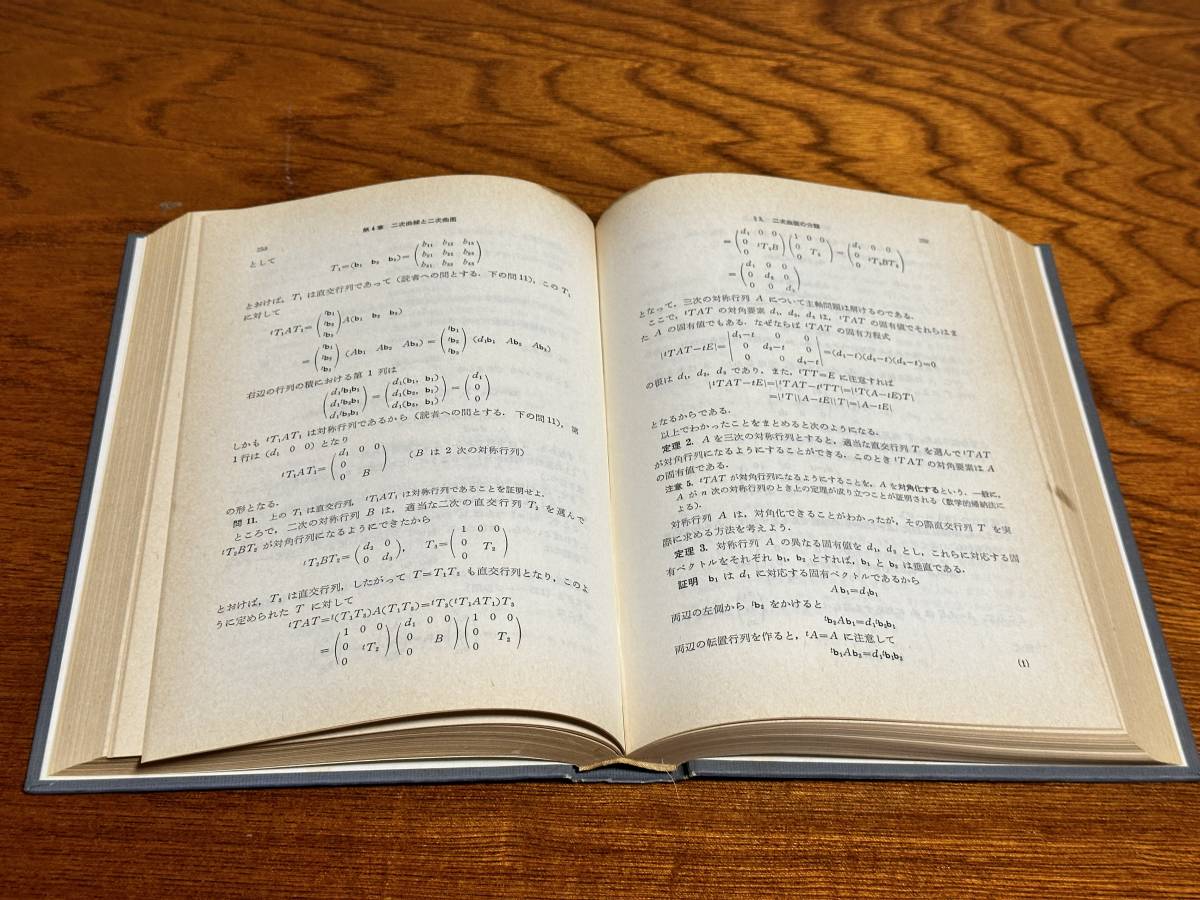 第4章 二次曲線と二次曲面
として
T₁=(b₁ b₂ b₃)=(b₁₁ b₁₂ b₁₃
b₂₁ b₂₂ b₂₃
b₃₁ b₃₂ b₃₃)
とおけば，T₁ は直交行列であって（読者への問とする．下の問11），この T₁
に対して
ᵗT₁AT₁=(ᵗb₁
ᵗb₂
ᵗb₃)A(b₁ b₂ b₃)
=(ᵗb₁
ᵗb₂
ᵗb₃)(Ab₁ Ab₂ Ab₃)=(ᵗb₁
ᵗb₂
ᵗb₃)(d₁b₁ Ab₂ Ab₃)
右辺の行列の積における第 1 列は
(d₁ᵗb₁b₁
d₁ᵗb₂b₁
d₁ᵗb₃b₁)=(d₁(b₁, b₁)
d₁(b₂, b₁)
d₁(b₃, b₁))=(d₁
0
0)
しかも ᵗT₁AT₁ は対称行列であるから（読者への問とする．下の問11），第
1 行は (d₁ 0 0) となり
ᵗT₁AT₁=(d₁ 0 0
0
0 B) （B は 2 次の対称行列）
の形となる．
問 11. 上の T₁ は直交行列，ᵗT₁AT₁ は対称行列であることを証明せよ．
ところで，二次の対称行列 B は，適当な二次の直交行列 T₂ を選んで
ᵗT₂BT₂ が対角行列になるようにできたから
ᵗT₂BT₂=(d₂ 0
0 d₃), T₃=(1 0 0
0
0 T₂)
とおけば，T₃ は直交行列，したがって T=T₁T₃ も直交行列となり，このよ
うに定められた T に対して
ᵗTAT=ᵗ(T₁T₃)A(T₁T₃)=ᵗT₃(ᵗT₁AT₁)T₃
=(1 0 0
0 ᵗT₂
0)(d₁ 0 0
0 B
0)(1 0 0
0 T₂
0)
二次曲面の分類
=(d₁ 0 0
0 ᵗT₂B
0)(1 0 0
0 T₂
0)=(d₁ 0 0
0 ᵗT₂BT₂
0)
=(d₁ 0 0
0 d₂ 0
0 0 d₃)
となって，三次の対称行列 A について主軸問題は解けるのである．
ここで，ᵗTAT の対角要素 d₁, d₂, d₃ は，ᵗTAT の固有値でそれらはま
た A の固有値でもある．なぜならば ᵗTAT の固有方程式
|ᵗTAT−tE|=|d₁−t 0 0
0 d₂−t 0
0 0 d₃−t|=(d₁−t)(d₂−t)(d₃−t)=0
の値は d₁, d₂, d₃ であり，また，ᵗTT=E に注意すれば
|ᵗTAT−tE|=|ᵗTAT−tᵗTT|=|ᵗT(A−tE)T|
=|ᵗT||A−tE||T|=|A−tE|
となるからである．
以上でわかったことをまとめると次のようになる．
定理 2. A を三次の対称行列とすると，適当な直交行列 T を選んで ᵗTAT
が対角行列になるようにすることができる．このとき ᵗTAT の対角要素は A
の固有値である．
注意 5. ᵗTAT が対角行列になるようにすることを，A を対角化するという．一般に，
A が n 次の対称行列のとき上の定理が成り立つことが証明される（数学的帰納法に
よる）．
対称行列 A は，対角化できることがわかったが，その際直交行列 T を実
際に求める方法を考えよう．
定理 3. 対称行列 A の異なる固有値を d₁, d₂ とし，これらに対応する固
有ベクトルをそれぞれ b₁, b₂ とすれば，b₁ と b₂ は垂直である．
証明 b₁ は d₁ に対応する固有ベクトルであるから
Ab₁=d₁b₁
両辺の左側から ᵗb₂ をかけると
ᵗb₂Ab₁=d₁ᵗb₂b₁
両辺の転置行列を作ると，ᵗA=A に注意して
ᵗb₁Ab₂=d₁ᵗb₁b₂ (1)